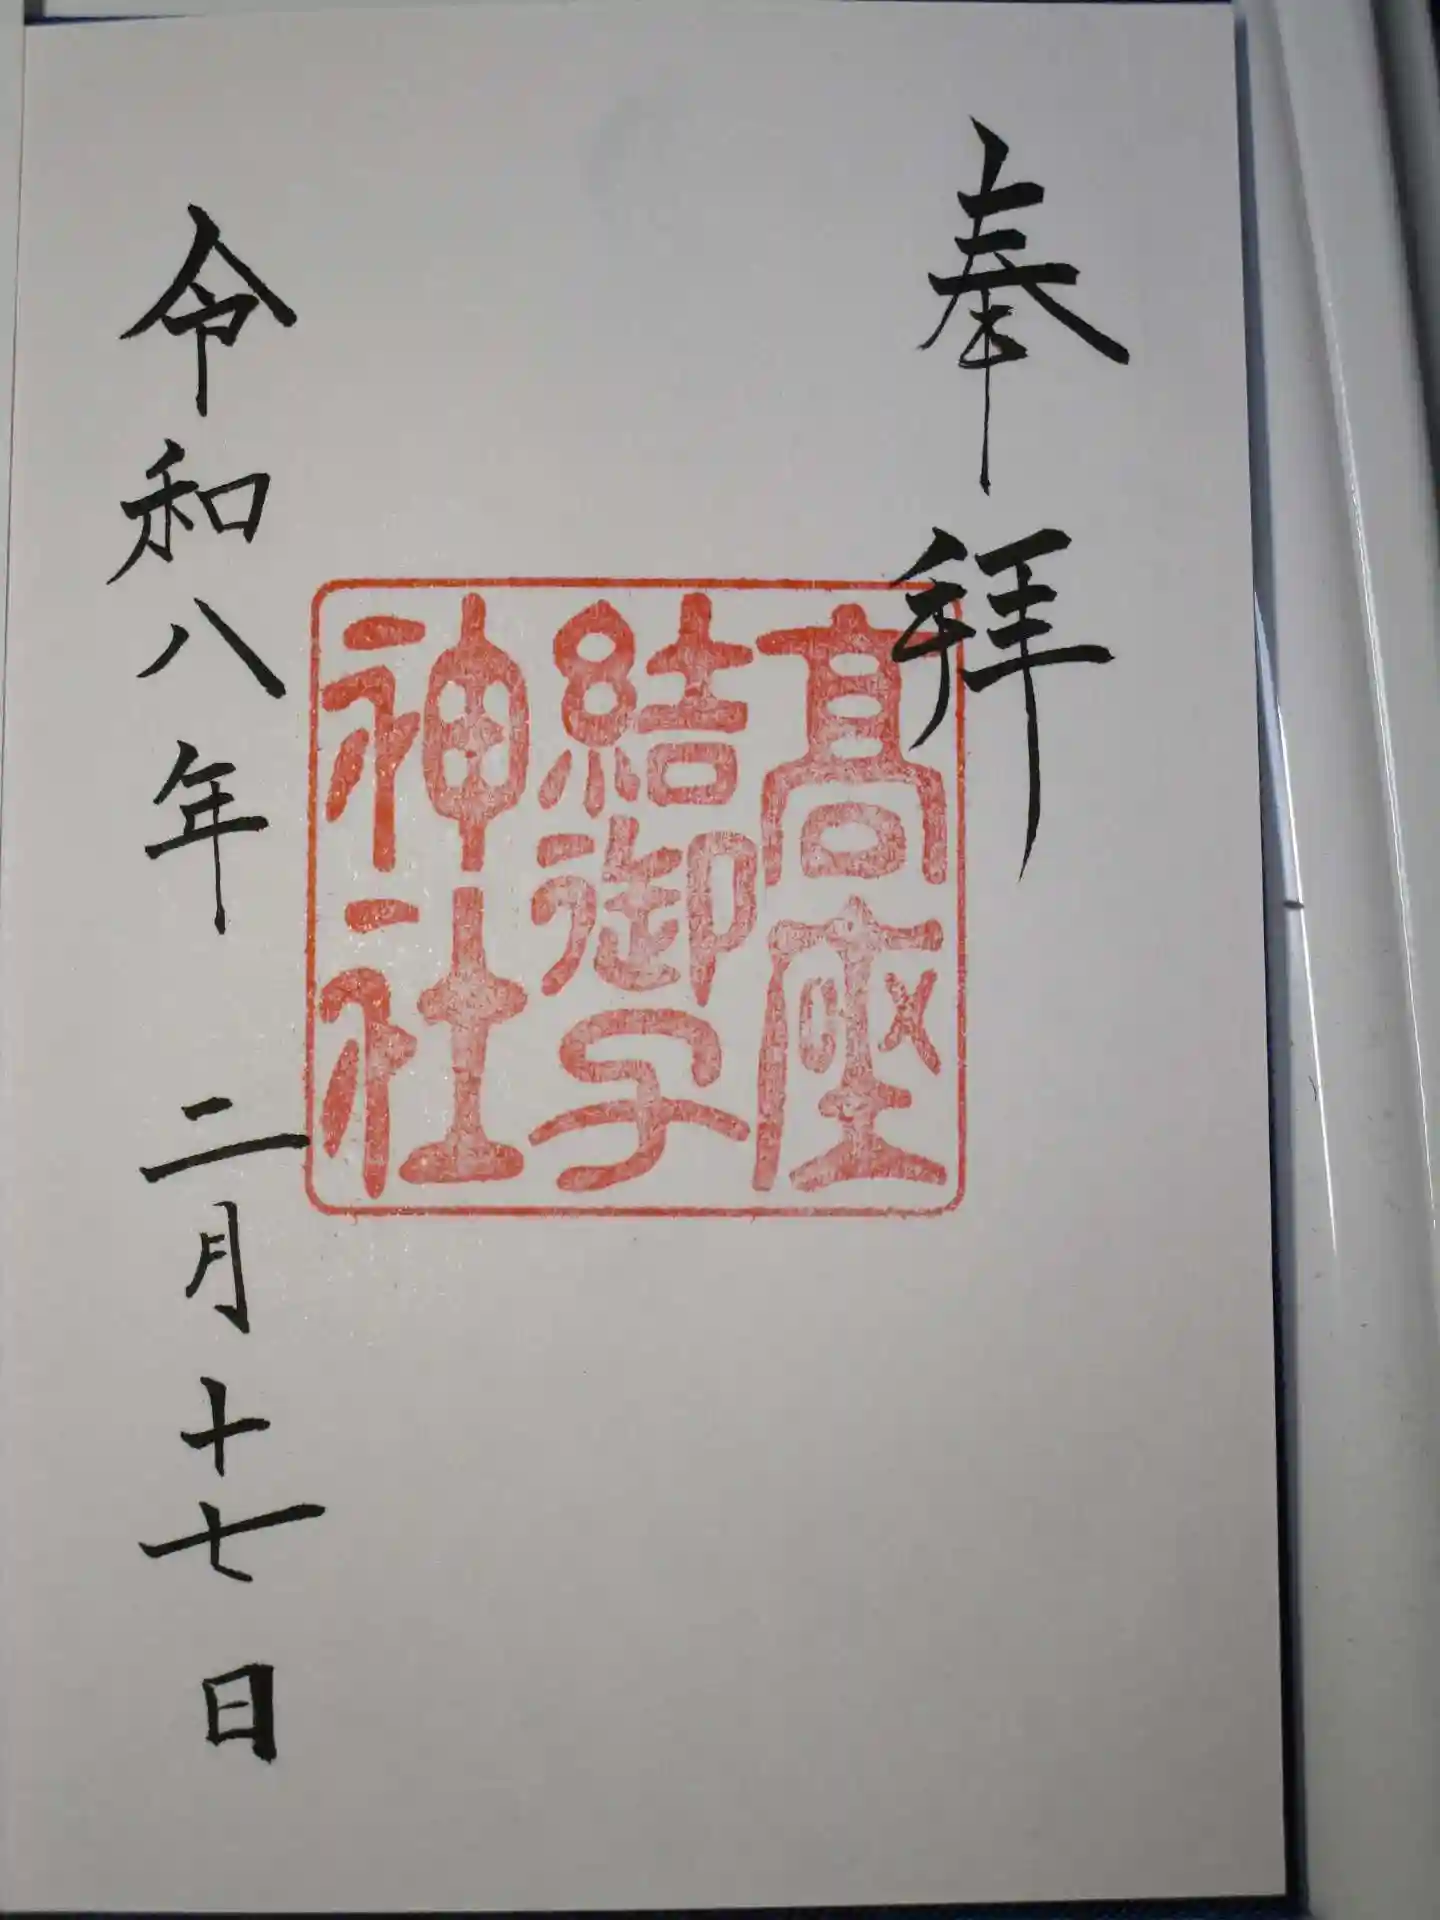 奉拝
髙座
結御子
神社
令和八年二月十七日